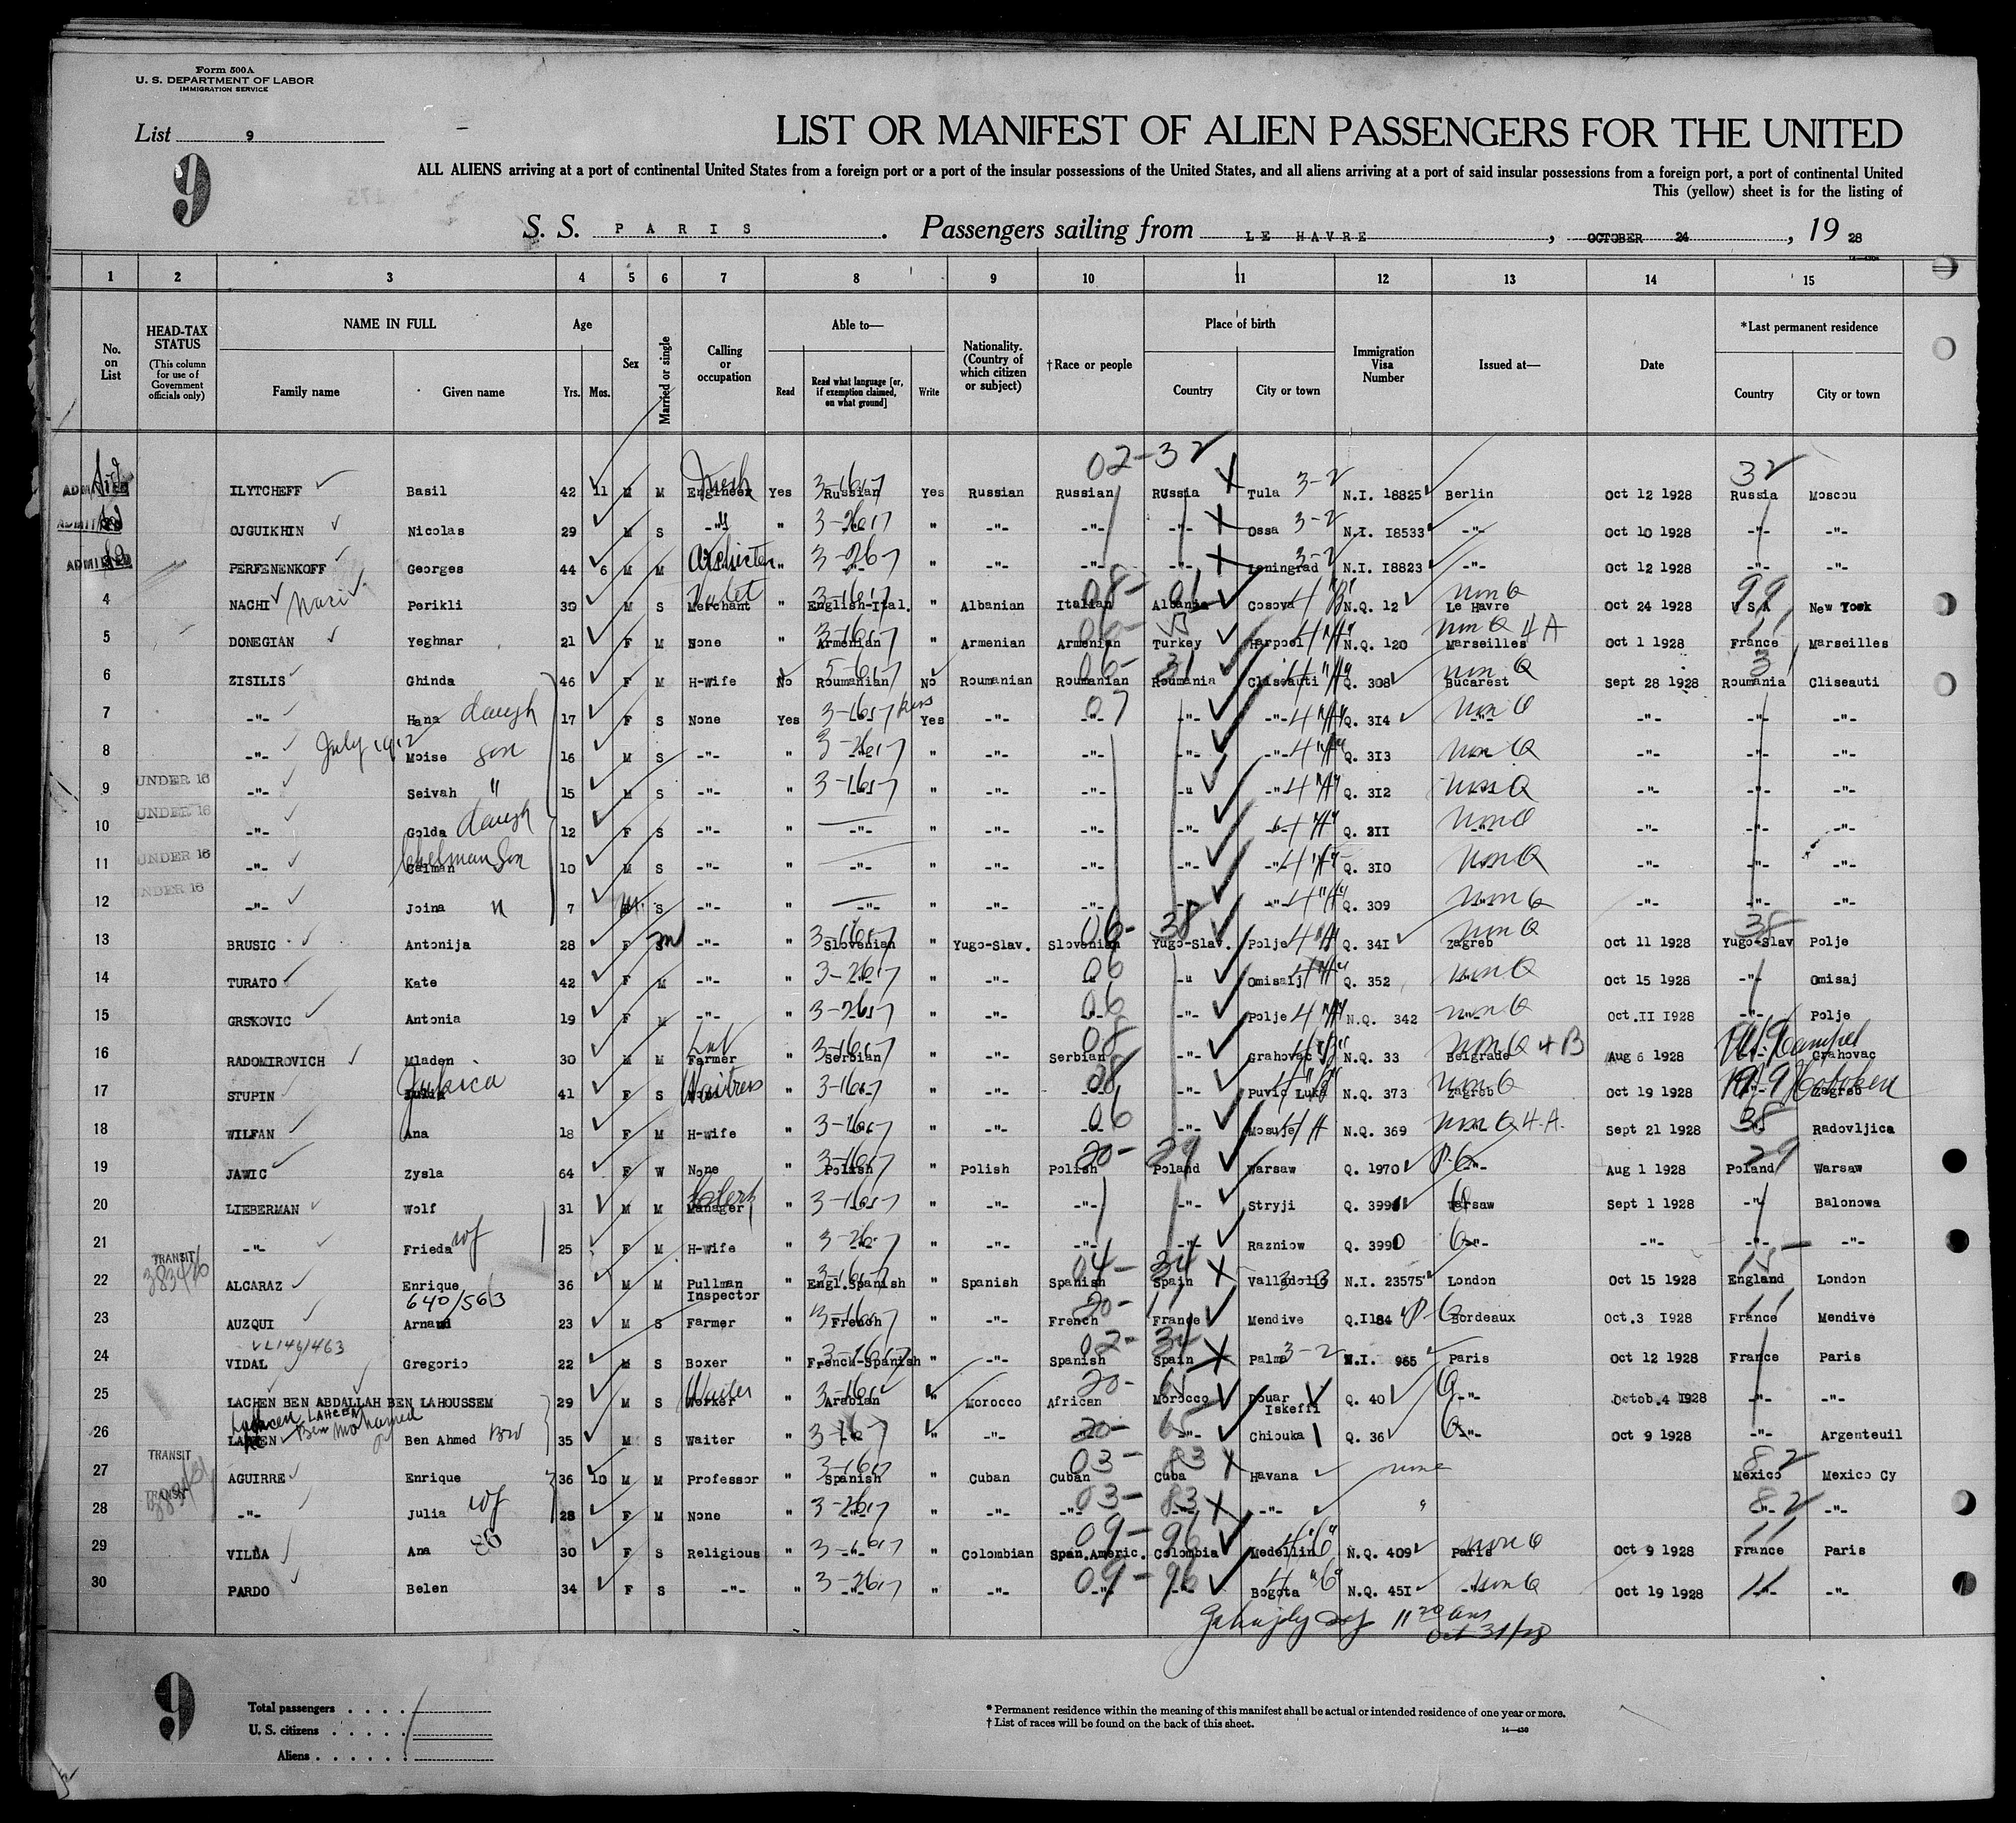 Form 500A
U. S. DEPARTMENT OF LABOR
IMMIGRATION SERVICE
List 9
9
LIST OR MANIFEST OF ALIEN PASSENGERS FOR THE UNITED
ALL ALIENS arriving at a port of continental United States from a foreign port or a port of the insular possessions of the United States, and all aliens arriving at a port of said insular possessions from a foreign port, a port of continental United
This (yellow) sheet is for the listing of
S. S. PARIS. Passengers sailing from LE HAVRE, OCTOBER 24, 19 28
1 2 3 4 5 6 7 8 9 10 11 12 13 14 15
No. on List
HEAD-TAX STATUS
(This column for use of Government officials only)
NAME IN FULL
Family name Given name
Age
Yrs. Mos.
Sex
Married or single
Calling or occupation
Able to—
Read
Read what language [or, if exemption claimed, on what ground]
Write
Nationality. (Country of which citizen or subject)
†Race or people
Place of birth
Country City or town
Immigration Visa Number
Issued at—
Date
*Last permanent residence
Country City or town
02-32 32
ADMITTED ILYTCHEFF Basil 42 11 M M Engineer Yes Russian Yes Russian Russian Russia Tula 3-2 N.I. 18825 Berlin Oct 12 1928 Russia Moscou
ADMITTED OJGUIKHIN Nicolas 29 M S -"- " " -"- -"- -"- Ossa 3-2 N.I. I8533 -"- Oct 10 1928 -"- -"-
ADMITTED PERFENENKOFF Georges 44 6 M M " " -"- -"- -"- Leningrad 3-2 N.I. I8823 -"- Oct 12 1928 -"- -"-
4 NACHI Perikli 30 M S Merchant Valet " English-Ital. " Albanian Italian Albania Cosova N.Q. 12 Le Havre Non Q Oct 24 1928 U S A New York
5 DONEGIAN Yeghnar 21 F M None " Armenian " Armenian Armenian Turkey Harpoel N.Q. 120 Marseilles Non Q 4 A Oct 1 1928 France Marseilles
6 ZISILIS Ghinda 46 F M H-wife No Roumanian No Roumanian Roumanian Roumania Cliseauti Q. 308 Bucarest Non Q Sept 28 1928 Roumania Cliseauti
7 -"- Hana daugh 17 F S None Yes Yes -"- -"- -"- -"- Q. 3I4 Non Q -"- -"- -"-
8 -"- July 1912 Moise son 16 M S -"- " " -"- -"- -"- -"- Q. 3I3 Non Q -"- -"- -"-
9 UNDER 16 -"- Seivah " 15 M S -"- " " -"- -"- -"- -"- Q. 3I2 Non Q -"- -"- -"-
10 UNDER 16 -"- Golda daugh 12 F S -"- " -"- " -"- -"- -"- Q. 3II Non Q -"- -"- -"-
11 UNDER 16 -"- Calman son 10 M S -"- " -"- " -"- -"- -"- -"- Q. 3I0 Non Q -"- -"- -"-
12 UNDER 16 -"- Joina " 7 M S -"- " -"- " -"- -"- -"- -"- Q. 309 Non Q -"- -"- -"-
13 BRUSIC Antonija 28 F M -"- " Slovenian " Yugo-Slav. Slovenian Yugo-Slav. Polje Q. 34I Zagreb Non Q Oct 11 1928 Yugo-Slav Polje
14 TURATO Kate 42 F M -"- " " -"- -"- Omisalj Q. 352 Non Q Oct 15 1928 -"- Omisaj
15 GRSKOVIC Antonia 19 F M -"- " " -"- -"- Polje N.Q. 342 Non Q Oct.II I928 -"- Polje
16 RADOMIROVICH Mladen 30 M M Farmer " Serbian " -"- Serbian -"- Grahovac N.Q. 33 Belgrade Non Q 4 B Aug 6 1928 Grahovac
17 STUPIN 41 F S Waitress " " -"- -"- Puvic Luka N.Q. 373 Zagreb Non Q Oct 19 1928 99 Hoboken Zagreb
18 WILFAN Ana 18 F M H-wife " " -"- -"- N.Q. 369 Non Q 4 A. Sept 21 1928 Radovljica
19 JAWIC Zysla 64 F W None " Polish " Polish Polish Poland Warsaw Q. 1970 -"- Aug 1 1928 Poland Warsaw
20 LIEBERMAN Wolf 31 M M Manager " " -"- -"- -"- Stryji Q. 3991 Warsaw Sept 1 1928 -"- Balonowa
21 -"- Frieda wf 25 F M H-wife " " -"- -"- -"- Razniow Q. 3990 -"- -"- -"- -"-
22 TRANSIT ALCARAZ Enrique 36 M M Pullman Inspector " Engl.Spanish " Spanish Spanish Spain Valladolid N.I. 23575 London Oct 15 1928 England London
640/563
23 AUZQUI Arnaud 23 M S Farmer " French " French France Mendive Q.I184 Bordeaux Oct.3 I928 France Mendive
24 VIDAL Gregorio 22 M S Boxer " French-Spanish " -"- Spanish Spain Palma 3-2 N.I. 965 Paris Oct 12 1928 France Paris
25 LACHEN BEN ABDALLAH BEN LAHOUSSEM 29 M S Worker Waiter " Arabian " Morocco African Morocco Douar Iskeffi Q. 40 -"- Octob.4 1928 -"- -"-
LAHCEN Ben Mohamed
26 Ben Ahmed 35 M S Waiter " " -"- -"- -"- Chiouka Q. 36 -"- Oct 9 1928 -"- Argenteuil
27 TRANSIT AGUIRRE Enrique 36 10 M M Professor " Spanish " Cuban Cuban Cuba Havana none Mexico Mexico Cy
28 TRANSIT -"- Julia wf 28 F M None " " -"- -"- -"- -"- " -"- -"-
29 VILLA Ana 30 F S Religious " -"- " Colombian Span.Americ. Colombia Medellin N.Q. 409 Paris Non Q Oct 9 1928 France Paris
30 PARDO Belen 34 F S -"- " -"- " -"- -"- -"- Bogota N.Q. 45I -"- Non Q Oct 19 1928 -"- -"-
Oct 31/28
9
Total passengers
U. S. citizens
Aliens
* Permanent residence within the meaning of this manifest shall be actual or intended residence of one year or more.
† List of races will be found on the back of this sheet.
14—430